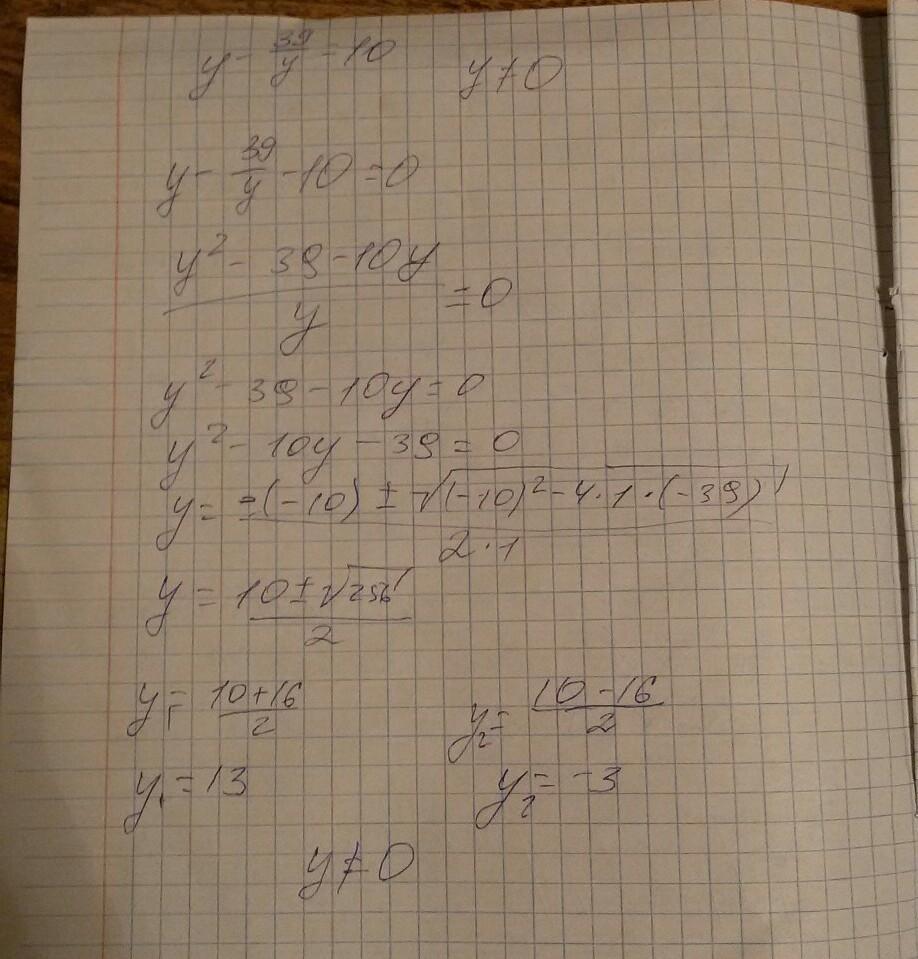 y - 39/y - 10 y ≠ 0
y - 39/y - 10 = 0
(y² - 39 - 10y)/y = 0
y² - 39 - 10y = 0
y² - 10y - 39 = 0
y = (-(-10) ± √((-10)² - 4·1·(-39)))/(2·1)
y = (10 ± √256)/2
y₁ = (10+16)/2 y₂ = (10-16)/2
y₁ = 13 y₂ = -3
y ≠ 0